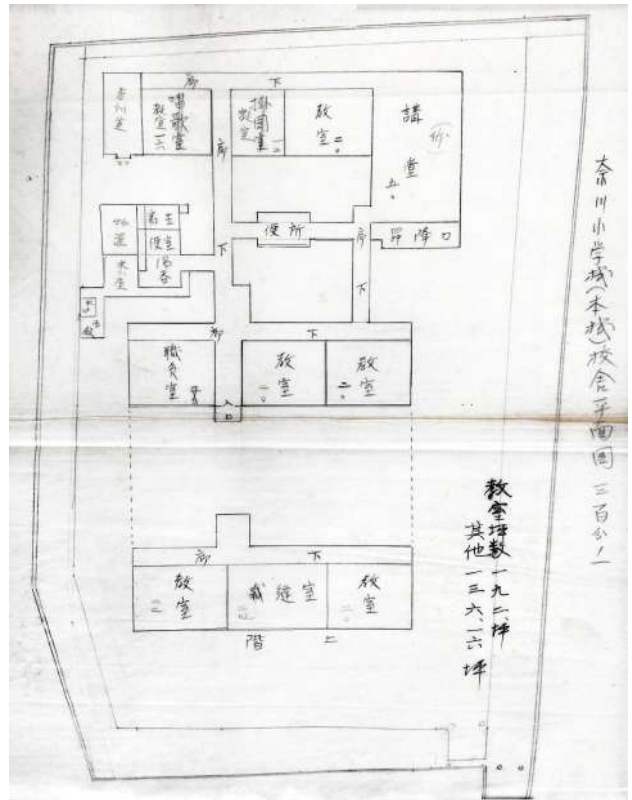 奈川小学校(本校)校舎平面図 三百分ノ一
教室坪数一九二、坪
其他一三六、一六坪
廊下
唱歌室
教室一六
掛図室
教室
教室
二〇
講堂
五〇
廊下
便所
廊下
昇降口
湯呑
廊下
職員室
教室
二〇
教室
二〇
入口
廊下
教室
裁縫室
教室
二〇
階上